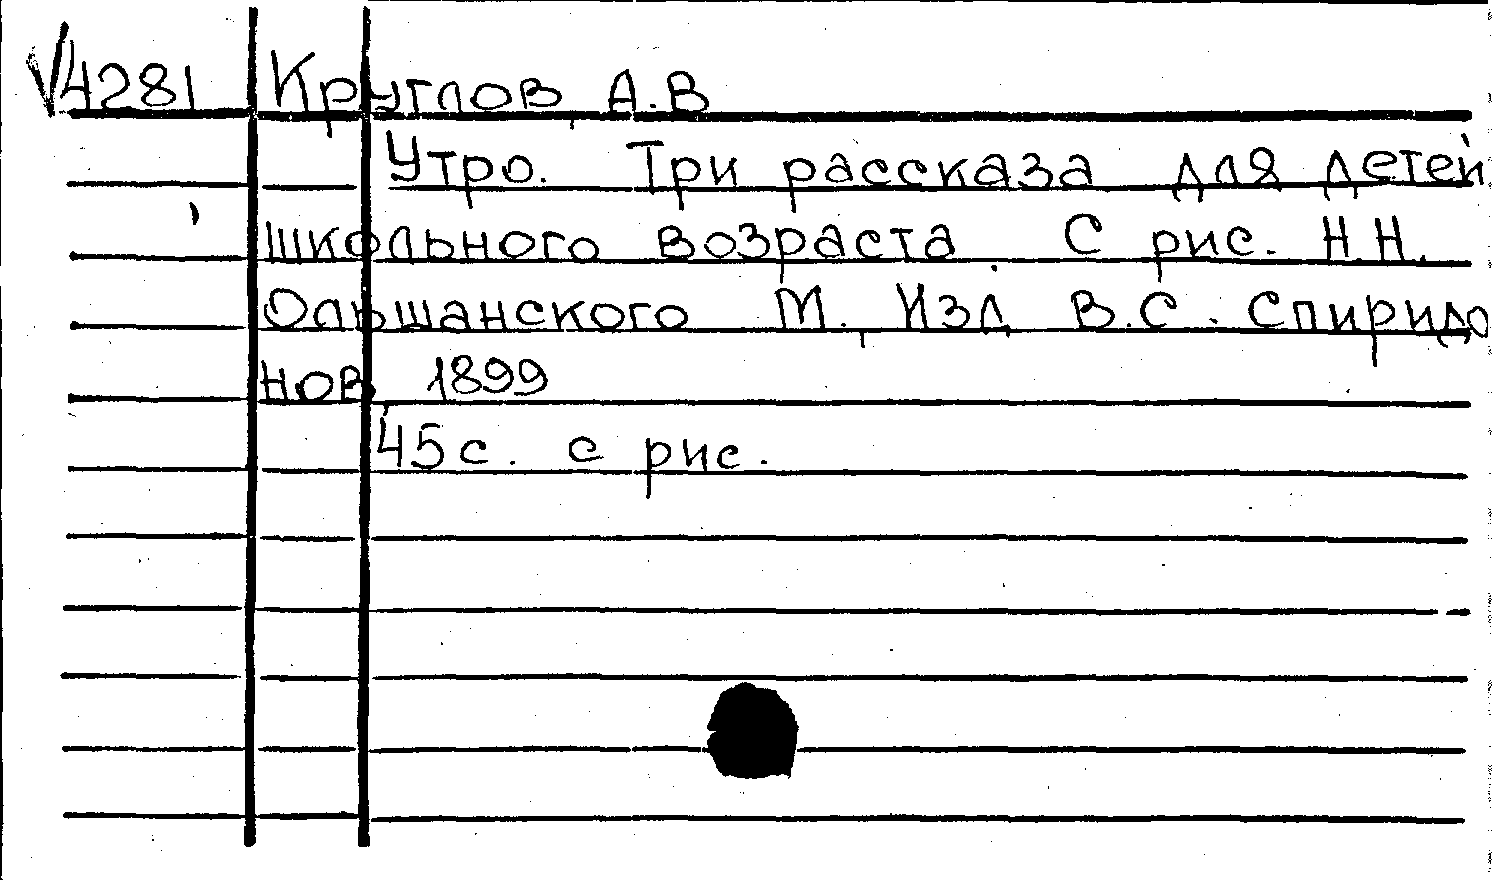 √4281 Круглов, А.В
Утро. Три рассказа для детей
школьного возраста. С рис. Н.Н.
Ольшанского М., Изд В.С. Спиридо
нов, 1899
45с. с рис.